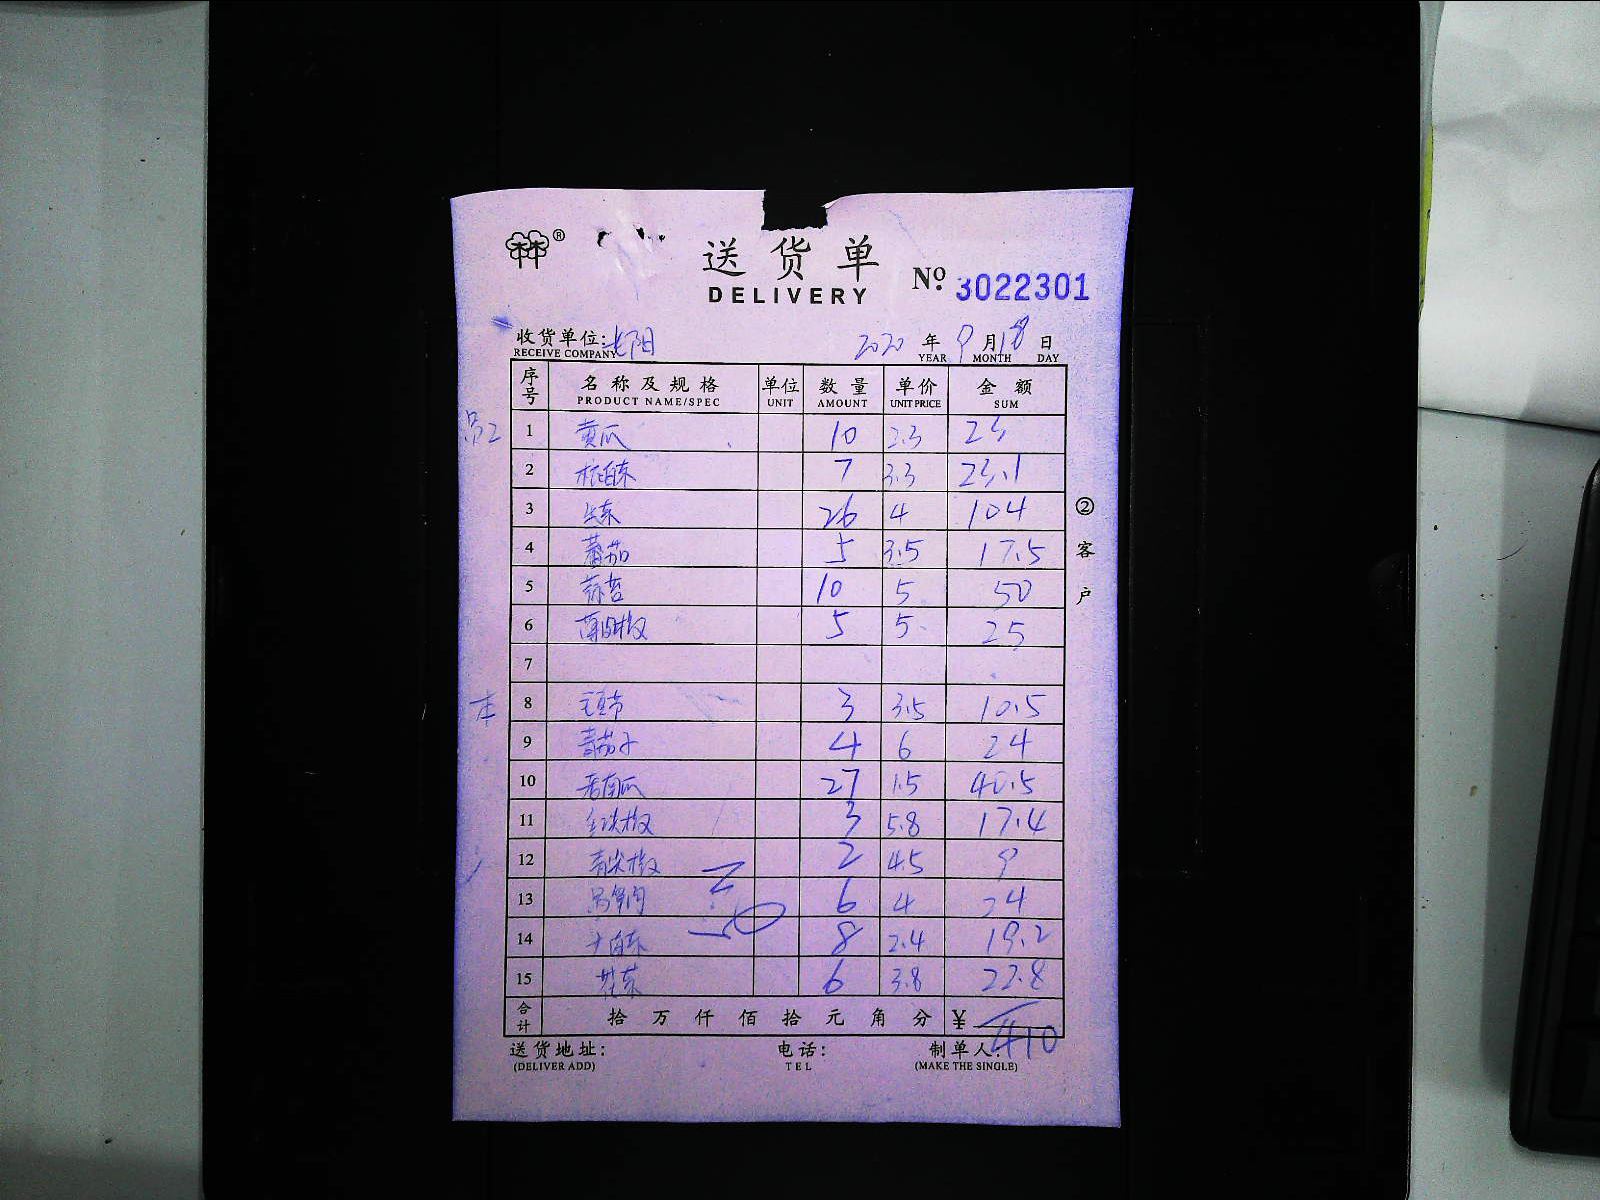 ®
送货单
DELIVERY
No. 3022301
收货单位: 长阳 2020 年 9 月 18 日
RECEIVE COMPANY YEAR MONTH DAY
序号 名称及规格 单位 数量 单价 金额
PRODUCT NAME/SPEC UNIT AMOUNT UNIT PRICE SUM
员工 1 黄瓜 10 2.3 23
2 7 3.3 23.1
3 生菜 26 4 104
4 蕃茄 5 3.5 17.5
5 10 5 50
6 薄肉椒 5 5 25
7
8 3 3.5 10.5
9 青茄子 4 6 24
10 老南瓜 27 1.5 40.5
11 3 5.8 17.4
12 青尖椒 2 4.5 9
13 6 4 24
14 8 2.4 19.2
15 花菜 6 3.8 22.8
合计 拾 万 仟 佰 拾 元 角 分 ¥ 410
送货地址: 电话: 制单人:
(DELIVER ADD) TEL (MAKE THE SINGLE)
②客户